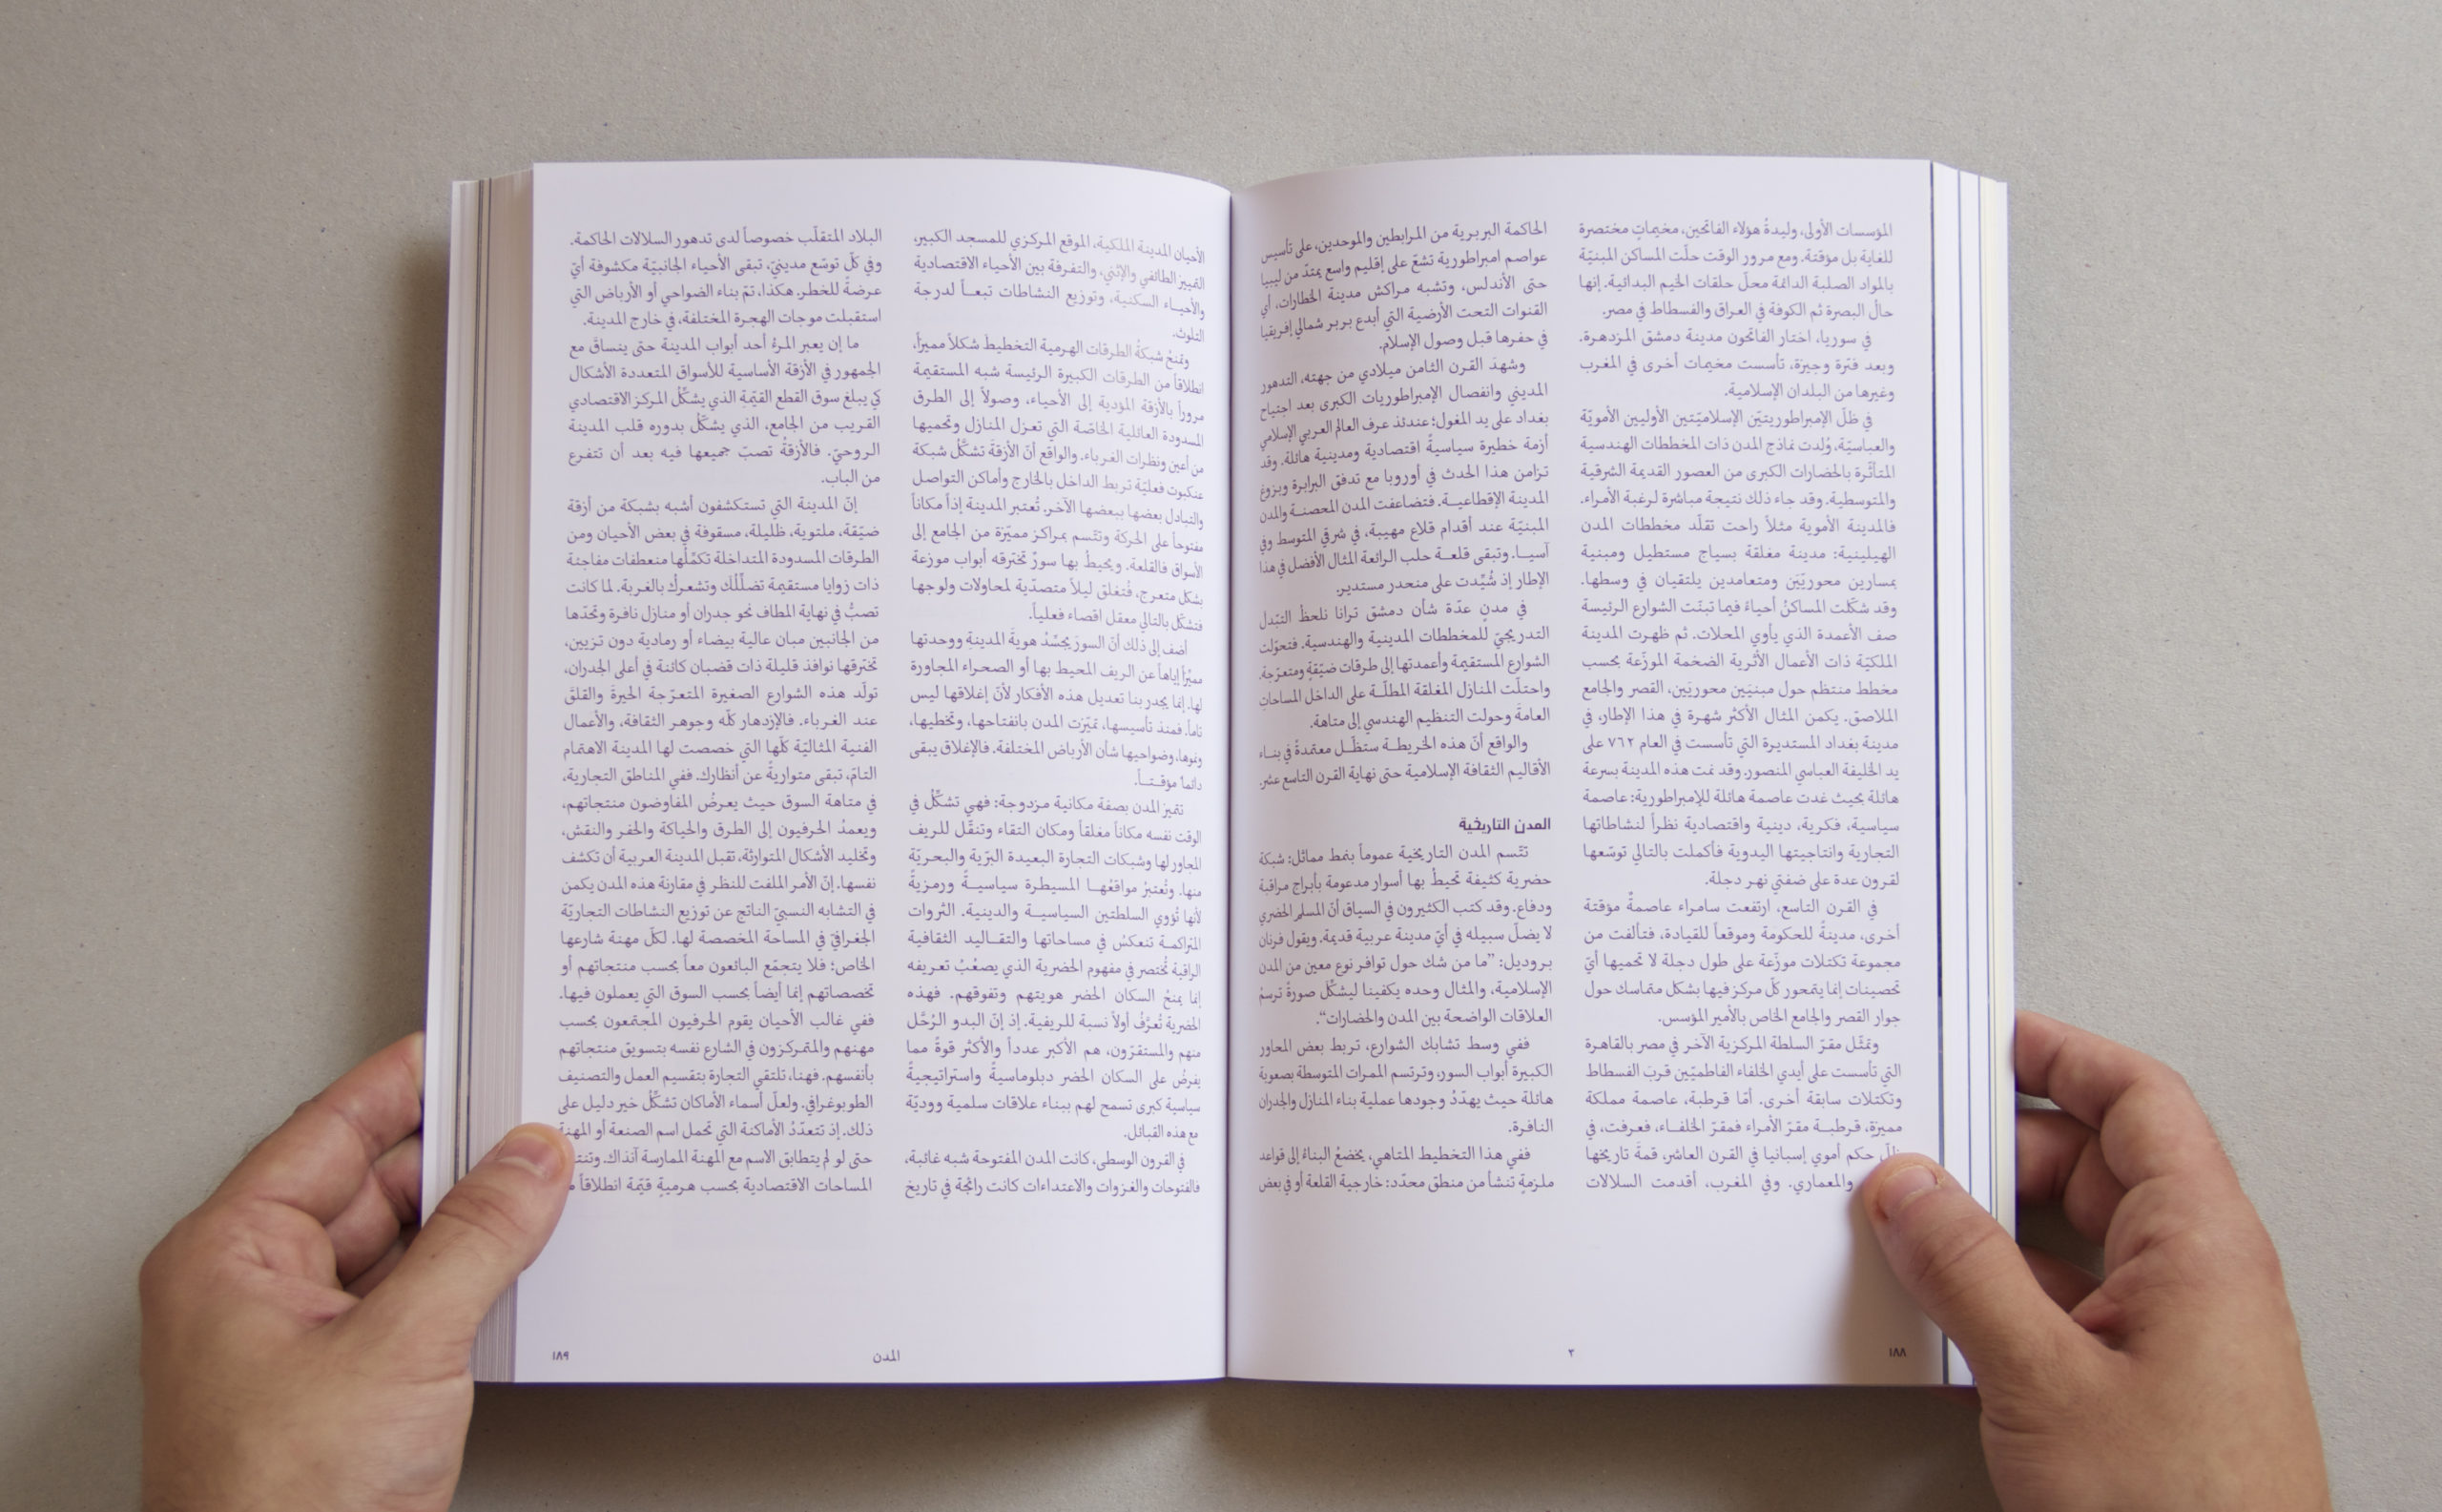 المؤسسات الأولى، وليدةُ هؤلاء الفاتحين، مخيماتٍ مختصرة
للغاية بل مؤقتة. ومع مرور الوقت حلّت المساكن المبنيّة
بالمواد الصلبة الدائمة محلّ حلقات الخيم البدائية. إنها
حالُ البصرة ثم الكوفة في العراق والفسطاط في مصر.
في سوريا، اختار الفاتحون مدينة دمشق المزدهرة.
وبعد فترة وجيزة، تأسست مخيمات أخرى في المغرب
وغيرها من البلدان الإسلامية.
في ظلّ الإمبراطوريتيَن الإسلاميّتين الأوليين الأمويّة
والعباسيّة، وُلدت نماذج المدن ذات المخططات الهندسية
المتأثّرة بالحضارات الكبرى من العصور القديمة الشرقية
والمتوسطية. وقد جاء ذلك نتيجة مباشرة لرغبة الأمراء.
فالمدينة الأموية مثلاً راحت تقلّد مخططات المدن
الهيلينية: مدينة مغلقة بسياج مستطيل ومبنية
بمسارين محوريَيَن ومتعامدين يلتقيان في وسطها.
وقد شكّلت المساكنُ أحياءً فيما تبنّت الشوارع الرئيسة
صف الأعمدة الذي يأوي المحلات. ثم ظهرت المدينة
الملكيّة ذات الأعمال الأثرية الضخمة الموزّعة بحسب
مخطط منتظم حول مبنيَين محوريَين، القصر والجامع
الملاصق. يكمن المثال الأكثر شهرة في هذا الإطار، في
مدينة بغداد المستديرة التي تأسست في العام ٧٦٢ على
يد الخليفة العباسي المنصور. وقد نمت هذه المدينة بسرعة
هائلة بحيث غدت عاصمة هائلة للإمبراطورية: عاصمة
سياسية، فكرية، دينية واقتصادية نظراً لنشاطاتها
التجارية وانتاجيتها اليدوية فأكملت بالتالي توسّعها
لقرون عدة على ضفتي نهر دجلة.
في القرن التاسع، ارتفعت سامراء عاصمةً مؤقتة
أخرى، مدينةً للحكومة وموقعاً للقيادة، فتألفت من
مجموعة تكتلات موزّعة على طول دجلة لا تحميها أيّ
تحصينات إنما يتمحور كلّ مركز فيها بشكل متماسك حول
جوار القصر والجامع الخاص بالأمير المؤسس.
وتمثّل مقرّ السلطة المركزية الآخر في مصر بالقاهرة
التي تأسست على أيدي الخلفاء الفاطميّين قربَ الفسطاط
وتكتلات سابقة أخرى. أمّا قرطبة، عاصمة مملكة
مميزة، قرطبـة مقرّ الأمراء فمقرّ الخلفـاء، فعرفت، في
ظلّ حكم أموي إسبانيا في القرن العاشر، قمةَ تاريخها
والمعماري. وفي المغرب، أقدمت السلالات
الحاكمة البربرية من المرابطين والموحدين، على تأسيس
عواصم امبراطورية تشعّ على إقليم واسع يمتدّ من ليبيا
حتى الأندلس، وتشبه مراكش مدينة الخطارات، أي
القنوات التحت الأرضية التي أبدع بربر شمالي إفريقيا
في حفرها قبل وصول الإسلام.
وشهدَ القرن الثامن ميلادي من جهته، التدهور
المديني وانفصال الإمبراطوريات الكبرى بعد اجتياح
بغداد على يد المغول؛ عندئذ عرف العالم العربي الإسلامي
أزمة خطيرة سياسيةً اقتصادية ومدينية هائلة. وقد
تزامن هذا الحدث في أوروبا مع تدفق البرابرة وبزوغ
المدينة الإقطاعيـة. فتضاعفت المدن المحصنـة والمدن
المبنيّة عند أقدام قلاع مهيبة، في شرقي المتوسط وفي
آسيـا. وتبقى قلعـة حلب الرائعة المثال الأفضل في هذا
الإطار إذ شُيّدت على منحدر مستدير.
في مدنٍ عدّة شأن دمشق ترانا نلحظُ التبّدل
التدريجيّ للمخططات المدينية والهندسية. فتحوّلت
الشوارع المستقيمة وأعمدتها إلى طرقات ضيّقةٍ ومتعرّجة.
واحتلّت المنازل المغلقة المطلّـة على الداخل المساحات
العامةَ وحولت التنظيم الهندسي إلى متاهة.
والواقع أنّ هذه الخريطـة ستظّـل معتمدةً في بنـاء
الأقاليم الثقافة الإسلامية حتى نهاية القرن التاسع عشر.
المدن التاريخية
تتّسم المدن التاريخية عموماً بنمط مماثل: شبكة
حضرية كثيفة تحيطُ بها أسوار مدعومة بأبراج مراقبة
ودفاع. وقد كتب الكثيرون في السياق أنّ المسلم الحضري
لا يضلّ سبيله في أيّ مدينة عربية قديمة. ويقول فرنان
بروديل: ”ما من شك حول توافر نوع معين من المدن
الإسلامية، والمثال وحده يكفينا ليشكّل صورةً ترسمُ
العلاقات الواضحة بين المدن والحضارات“.
ففي وسط تشابك الشوارع، تربط بعض المحاور
الكبيرة أبواب السور، وترتسم الممرات المتوسطة بصعوبة
هائلة حيث يهدّدُ وجودها عملية بناء المنازل والجدران
النافرة.
ففي هذا التخطيط المتاهي، يخضعُ البناءُ إلى قواعد
ملزمةٍ تنشأ من منطق محدّد: خارجية القلعة أو في بعض
١٨٨
٢
الأحيان المدينة الملكية، الموقع المركزي للمسجد الكبير،
التمييز الطائفي والإثني، والتفرقة بين الأحياء الاقتصادية
والأحيـاء السكنية، وتوزيع النشاطات تبعـاً لدرجة
التلوث.
وتمنحُ شبكةُ الطرقات الهرمية التخطيطَ شكلاً مميزاً،
انطلاقاً من الطرقات الكبيرة الرئيسة شبه المستقيمة
مروراً بالأزقة المؤدية إلى الأحياء، وصولاً إلى الطرق
المسدودة العائلية الخاصّة التي تعزل المنازل وتحميها
من أعين ونظرات الغرباء. والواقع أنّ الأزقةَ تشكّل شبكة
عنكبوت فعليّة تربط الداخل بالخارج وأماكن التواصل
والتبادل بعضها ببعضها الآخر. تُعتبر المدينة إذاً مكاناً
مفتوحاً على الحركة وتتّسم بمراكز مميّزة من الجامع إلى
الأسواق فالقلعة. ويحيطُ بها سورٌ تخترقه أبواب موزعة
بشكل متعرج، فُتغلق ليلاً متصدّية لمحاولات ولوجها
فتشكّل بالتالي معقل اقصاء فعلياً.
أضف إلى ذلك أنّ السورَ يجسّدُ هويةَ المدينةِ ووحدتها
مميّزاً إياها عن الريف المحيط بها أو الصحراء المجاورة
لها. إنما يجدر بنا تعديل هذه الأفكار لأنّ إغلاقها ليس
تاماً. فمنذ تأسيسها، تميّزت المدن بانفتاحها، وتخطيها،
ونموها، وضواحيها شأن الأرباض المختلفة. فالإغلاق يبقى
دائماً مؤقـتـاً.
تتميز المدن بصفة مكانية مزدوجة: فهي تشكّلُ في
الوقت نفسه مكاناً مغلقاً ومكان التقاء وتنقّل للريف
المجاور لها وشبكات التجارة البعيدة البرّية والبحريّة
منها. وتُعتبرُ مواقعُهـا المسيطرة سياسيـةً ورمزيةً
لأنها تُؤوي السلطتين السياسيـة والدينية. الثروات
المتراكمـة تنعكسُ في مساحاتها والتقـاليد الثقافية
الراقية تُختصر في مفهوم الحضرية الذي يصعُبُ تعريفه
إنما يمنحُ السكان الحضر هويتهم وتفوقهم. فهذه
الحضرية تُعرّفُ أولاً نسبة للريفية. إذ إنّ البدو الرُحّل
منهم والمستقرّون، هم الأكبر عدداً والأكثر قوةً مما
يفرضُ على السكان الحضر دبلوماسيةً واستراتيجيةً
سياسية كبرى تسمح لهم ببناء علاقات سلمية ووديّة
مع هذه القبائل.
في القرون الوسطى، كانت المدن المفتوحة شبه غائبة،
فالفتوحات والغزوات والاعتداءات كانت رائجة في تاريخ
البلاد المتقلّب خصوصاً لدى تدهور السلالات الحاكمة.
وفي كلّ توسّع مدينيّ، تبقى الأحياء الجانبيّة مكشوفة أيّ
عرضةً للخطر. هكذا، تمّ بناء الضواحي أو الأرباض التي
استقبلت موجات الهجرة المختلفة، في خارج المدينة.
ما إن يعبر المرءُ أحد أبواب المدينة حتى ينساقَ مع
الجمهور في الأزقة الأساسية للأسواق المتعددة الأشكال
كي يبلغ سوق القطع القيّمة الذي يشكّلُ المركز الاقتصادي
القريب من الجامع، الذي يشكّلُ بدوره قلب المدينة
الروحيّ. فالأزقةُ تصبّ جميعها فيه بعد أن تتفرع
من الباب.
إنّ المدينة التي تستكشفون أشبه بشبكة من أزقة
ضيّقة، ملتوية، ظليلة، مسقوفة في بعض الأحيان ومن
الطرقات المسدودة المتداخلة تكمّلُها منعطفات مفاجئة
ذات زوايا مستقيمة تضلّلُك وتشعركُ بالغربة. لما كانت
تصبُّ في نهاية المطاف نحو جدران أو منازل نافرة وتحدّها
من الجانبين مبان عالية بيضاء أو رمادية دون تزيين،
تخترقها نوافذ قليلة ذات قضبان كائنة في أعلى الجدران،
تولّد هذه الشوارع الصغيرة المتعرّجة الحيرةَ والقلقَ
عند الغرباء. فالإزدهار كلّه وجوهر الثقافة، والأعمال
الفنية المثاليّة كلّها التي خصصت لها المدينة الاهتمام
التامّ، تبقى متواريةً عن أنظارك. ففي المناطق التجارية،
في متاهة السوق حيث يعرضُ المفاوضون منتجاتهم،
ويعمدُ الحرفيون إلى الطرق والحياكة والحفر والنقش،
وتخليد الأشكال المتوارثة، تقبل المدينة العربية أن تكشف
نفسها. إنّ الأمر الملفت للنظر في مقارنة هذه المدن يكمن
في التشابه النسبيّ الناتج عن توزيع النشاطات التجاريّة
الجغرافيّ في المساحة المخصصة لها. لكلّ مهنة شارعها
الخاص؛ فلا يتجمّع البائعون معاً بحسب منتجاتهم أو
تخصصاتهم إنما أيضاً بحسب السوق التي يعملون فيها.
ففي غالب الأحيان يقوم الحرفيون المجتمعون بحسب
مهنهم والمتمركزون في الشارع نفسه بتسويق منتجاتهم
بأنفسهم. فهنا، تلتقي التجارة بتقسيم العمل والتصنيف
الطوبوغرافي. ولعلّ أسماء الأماكان تشكّلُ خير دليل على
ذلك. إذ تتعدّدُ الأماكنة التي تحمل اسم الصنعة أو المهنة
حتى لو لم يتطابق الاسم مع المهنة الممارسة آنذاك.
المساحات الاقتصادية بحسب هرميةٍ قيّمة انطلاقاً
المدن
١٨٩